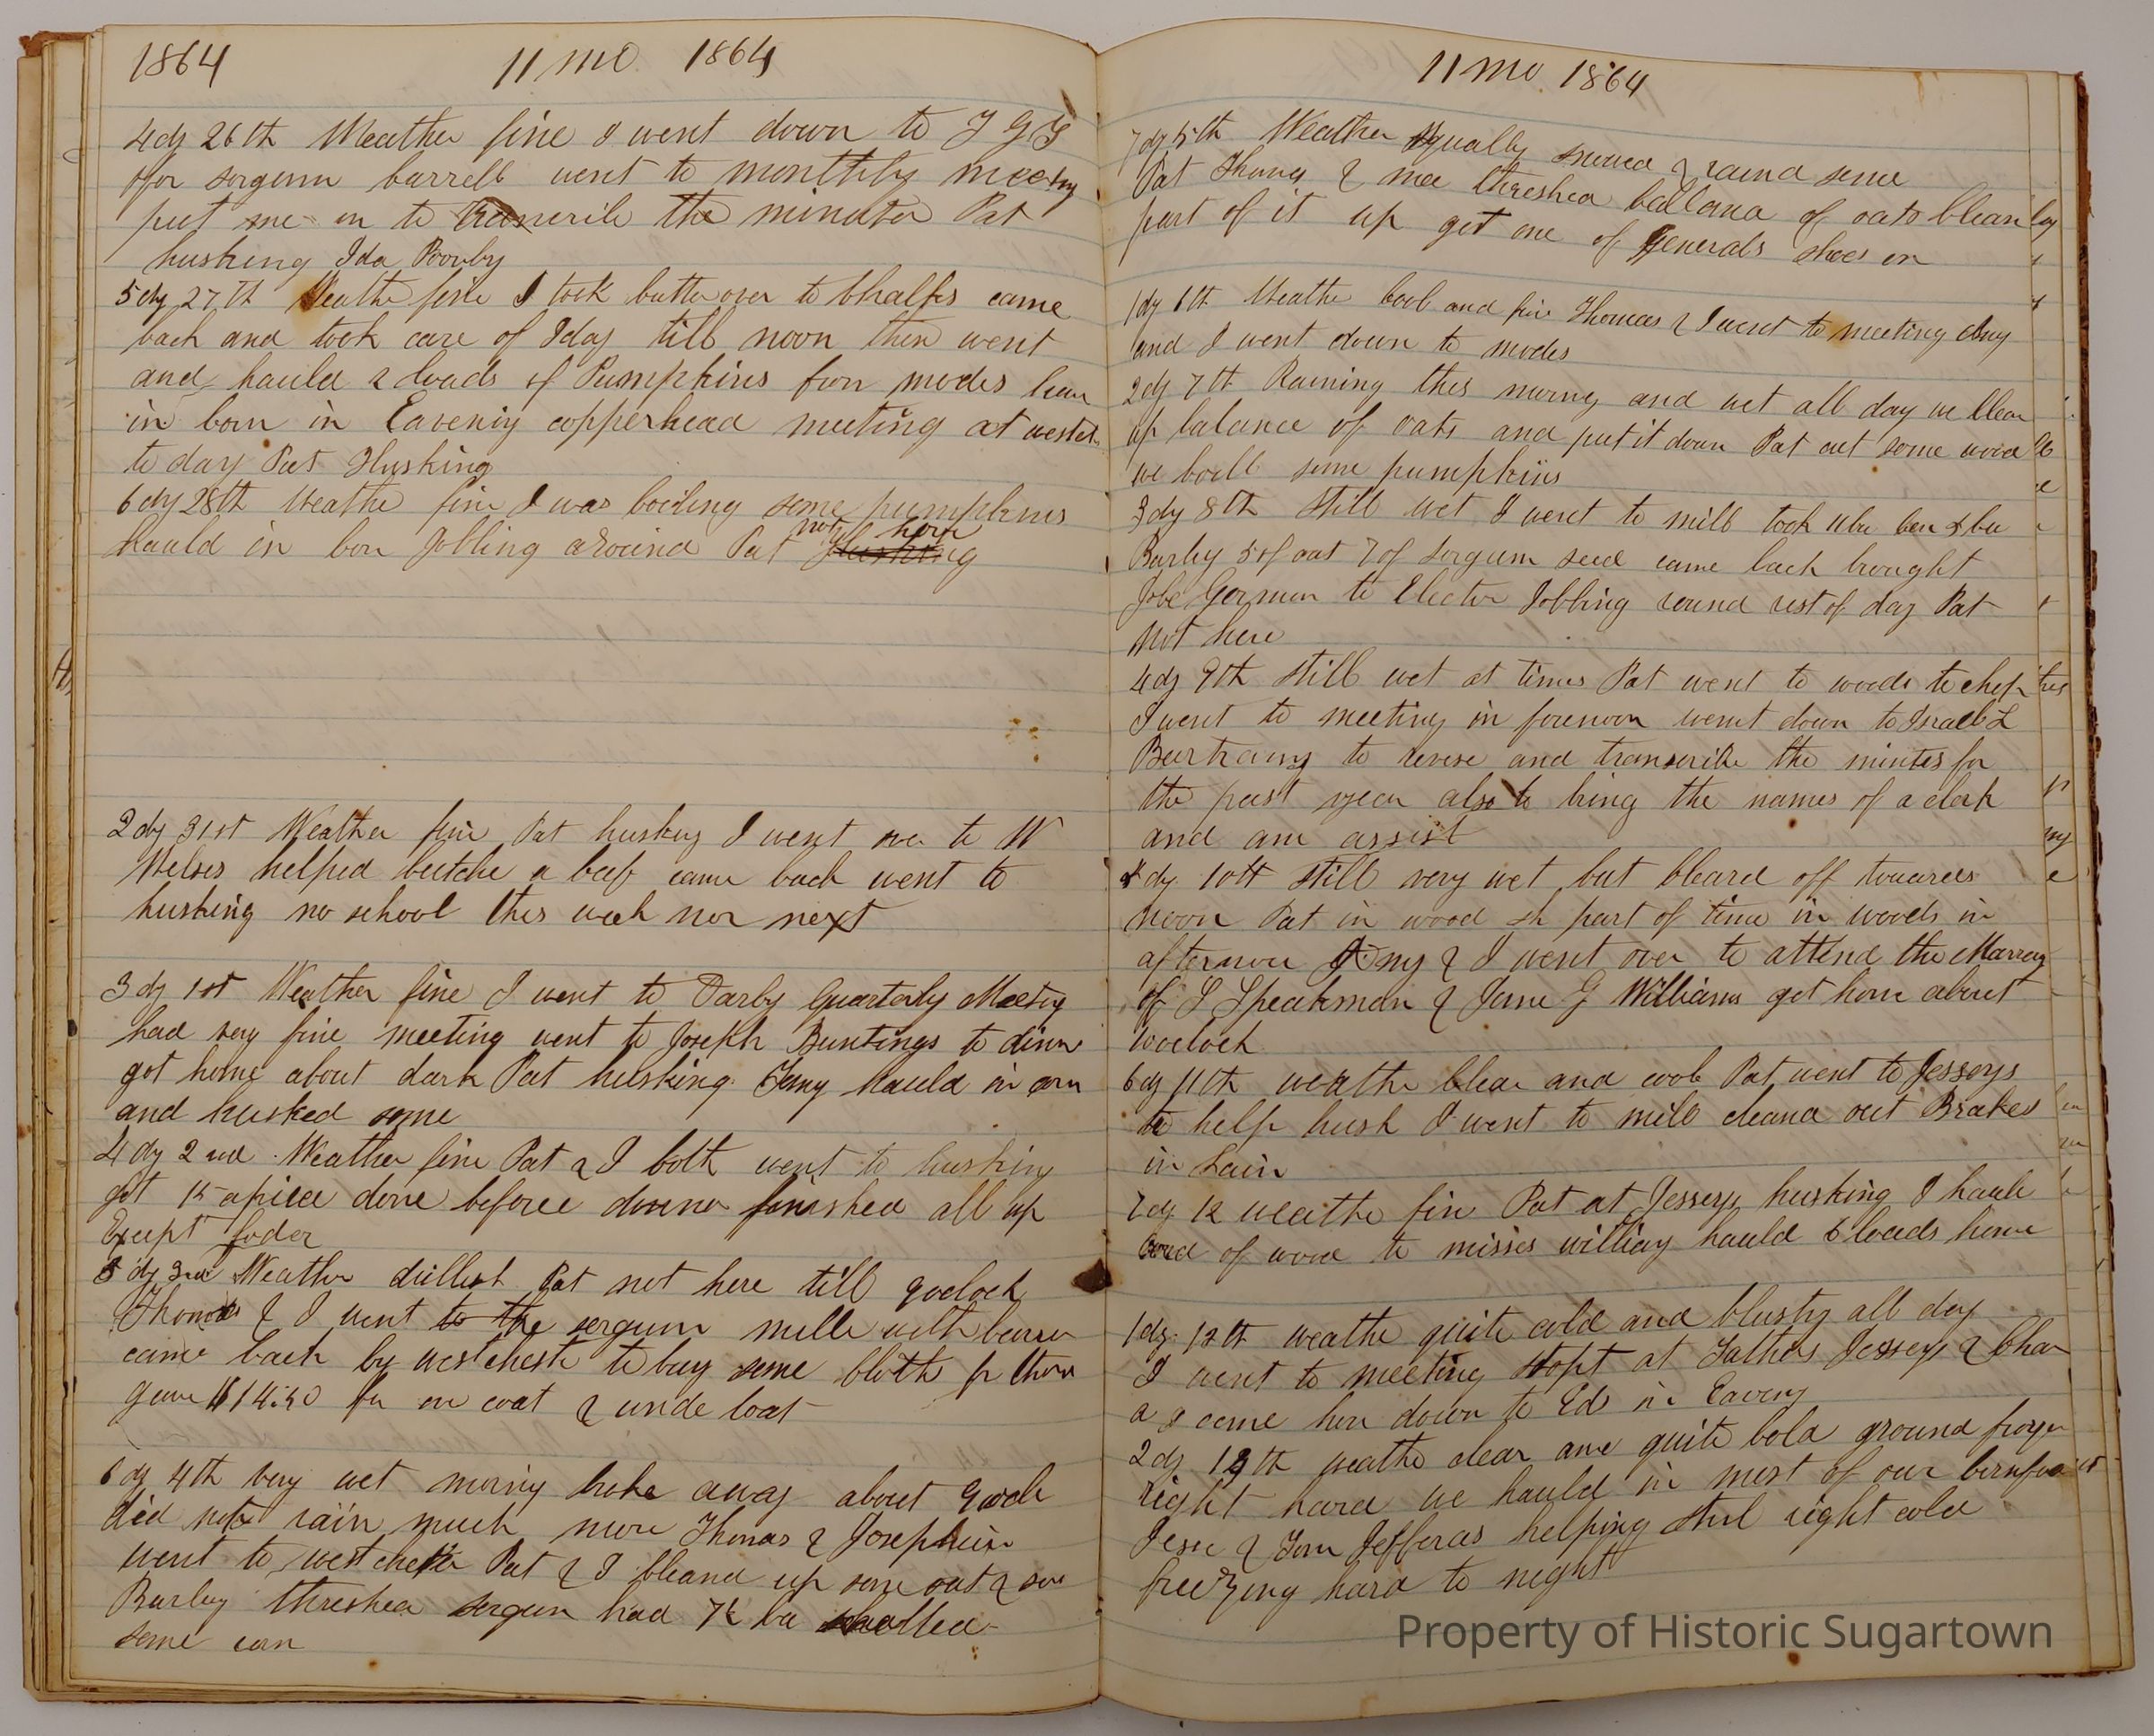 1864 11 mo 1864
4dy 26th Weather fine I went down to J G G
for sorgum barrell went to monthly meeting
put me on to transcribe the minutes Pat
husking Ida Poorly
5dy 27th Weathe fine I took butter over to Chalfs came
back and took care of Iday till noon then went
and hauld 2 loads of Pumpkins from modes
in corn in Eavening copperhead meeting at westch
to day Pat Husking
6dy 28th Weathe fine I was boiling some pumpkins
hauld in corn Jobling around Pat not here husking
2dy 31st Weather fine Pat husking I went over to W
Welses helped butche a beef came back went to
husking no school this week nor next
3dy 1st Weather fine I went to Darby Quarterly Meeting
had very fine meeting went to Joseph Buntings to dinner
got home about dark Pat husking hauld in corn
and husked some
4dy 2nd Weather fine Pat & I both went to husking
got 15 apiece done before dinner finished all up
Except foder
5dy 3rd Weather dullish Pat not here till 9 oclock
Thomas & I went to the sorgum mille with
came back by westcheste to buy some Cloth for Thom
gave $14.50 for on coat & unde Coat
6dy 4th very wet morning broke away about 9 ocloc
did note rain much more Thomas & Josephine
went to westcheste Pat & I Cleand up some oat & some
Barley threshed sorgum had 7½ bu shelled
some corn
11 mo 1864
7dy 5th Weather Squally snowed & raind some
Pat Thomas & mee threshed ballance of oats Clean
part of it up got one of Generals shoes on
1dy 6th Weathe Cool and fine Thomas & I went to meeting Amy
and I went down to modes
2dy 7th Raining this morning and wet all day we Clean
up balance of oats and put it down Pat cut some wood
we boill some pumpkins
3dy 8th still wet I went to mill took
Barley 5 of oat 7 of sorgum seed came back brought
Jobe Gorman to Election Jobbling round rest of day Pat
Not here
4dy 9th still wet at times Pat went to woods to chop
I went to meeting in forenoon went down to Israel L
Bertrams to revise and transcribe the mintes for
the past year also to bring the names of a clerk
and am assist
5dy 10th still very wet but Cleard off towards
noon Pat in wood sh part of time in woods in
afternoon Amy & I went over to attend the Marreg
of L Speakman & Jane G Williams got home about
10 oclock
6dy 11th weathe Clear and cool Pat went to Jesseys
to help husk I went to mill cleand out Brakes
in Lain
7dy 12 weathe fine Pat at Jesseys husking I haule
Cord of wood to misses williay hauld 6 loads home
1dy 13th weathe quite cold and blusty all day
I went to meeting stopt at Fathers Jesseys & Char
a s came hom down to Eds in Eavening
2dy 14th weathe clear and quite Cold ground frozen
right hard we hauld in most of our cornfod
Jesse & Tom Jefferas helping still right cold
freezing hard to night
Property of Historic Sugartown